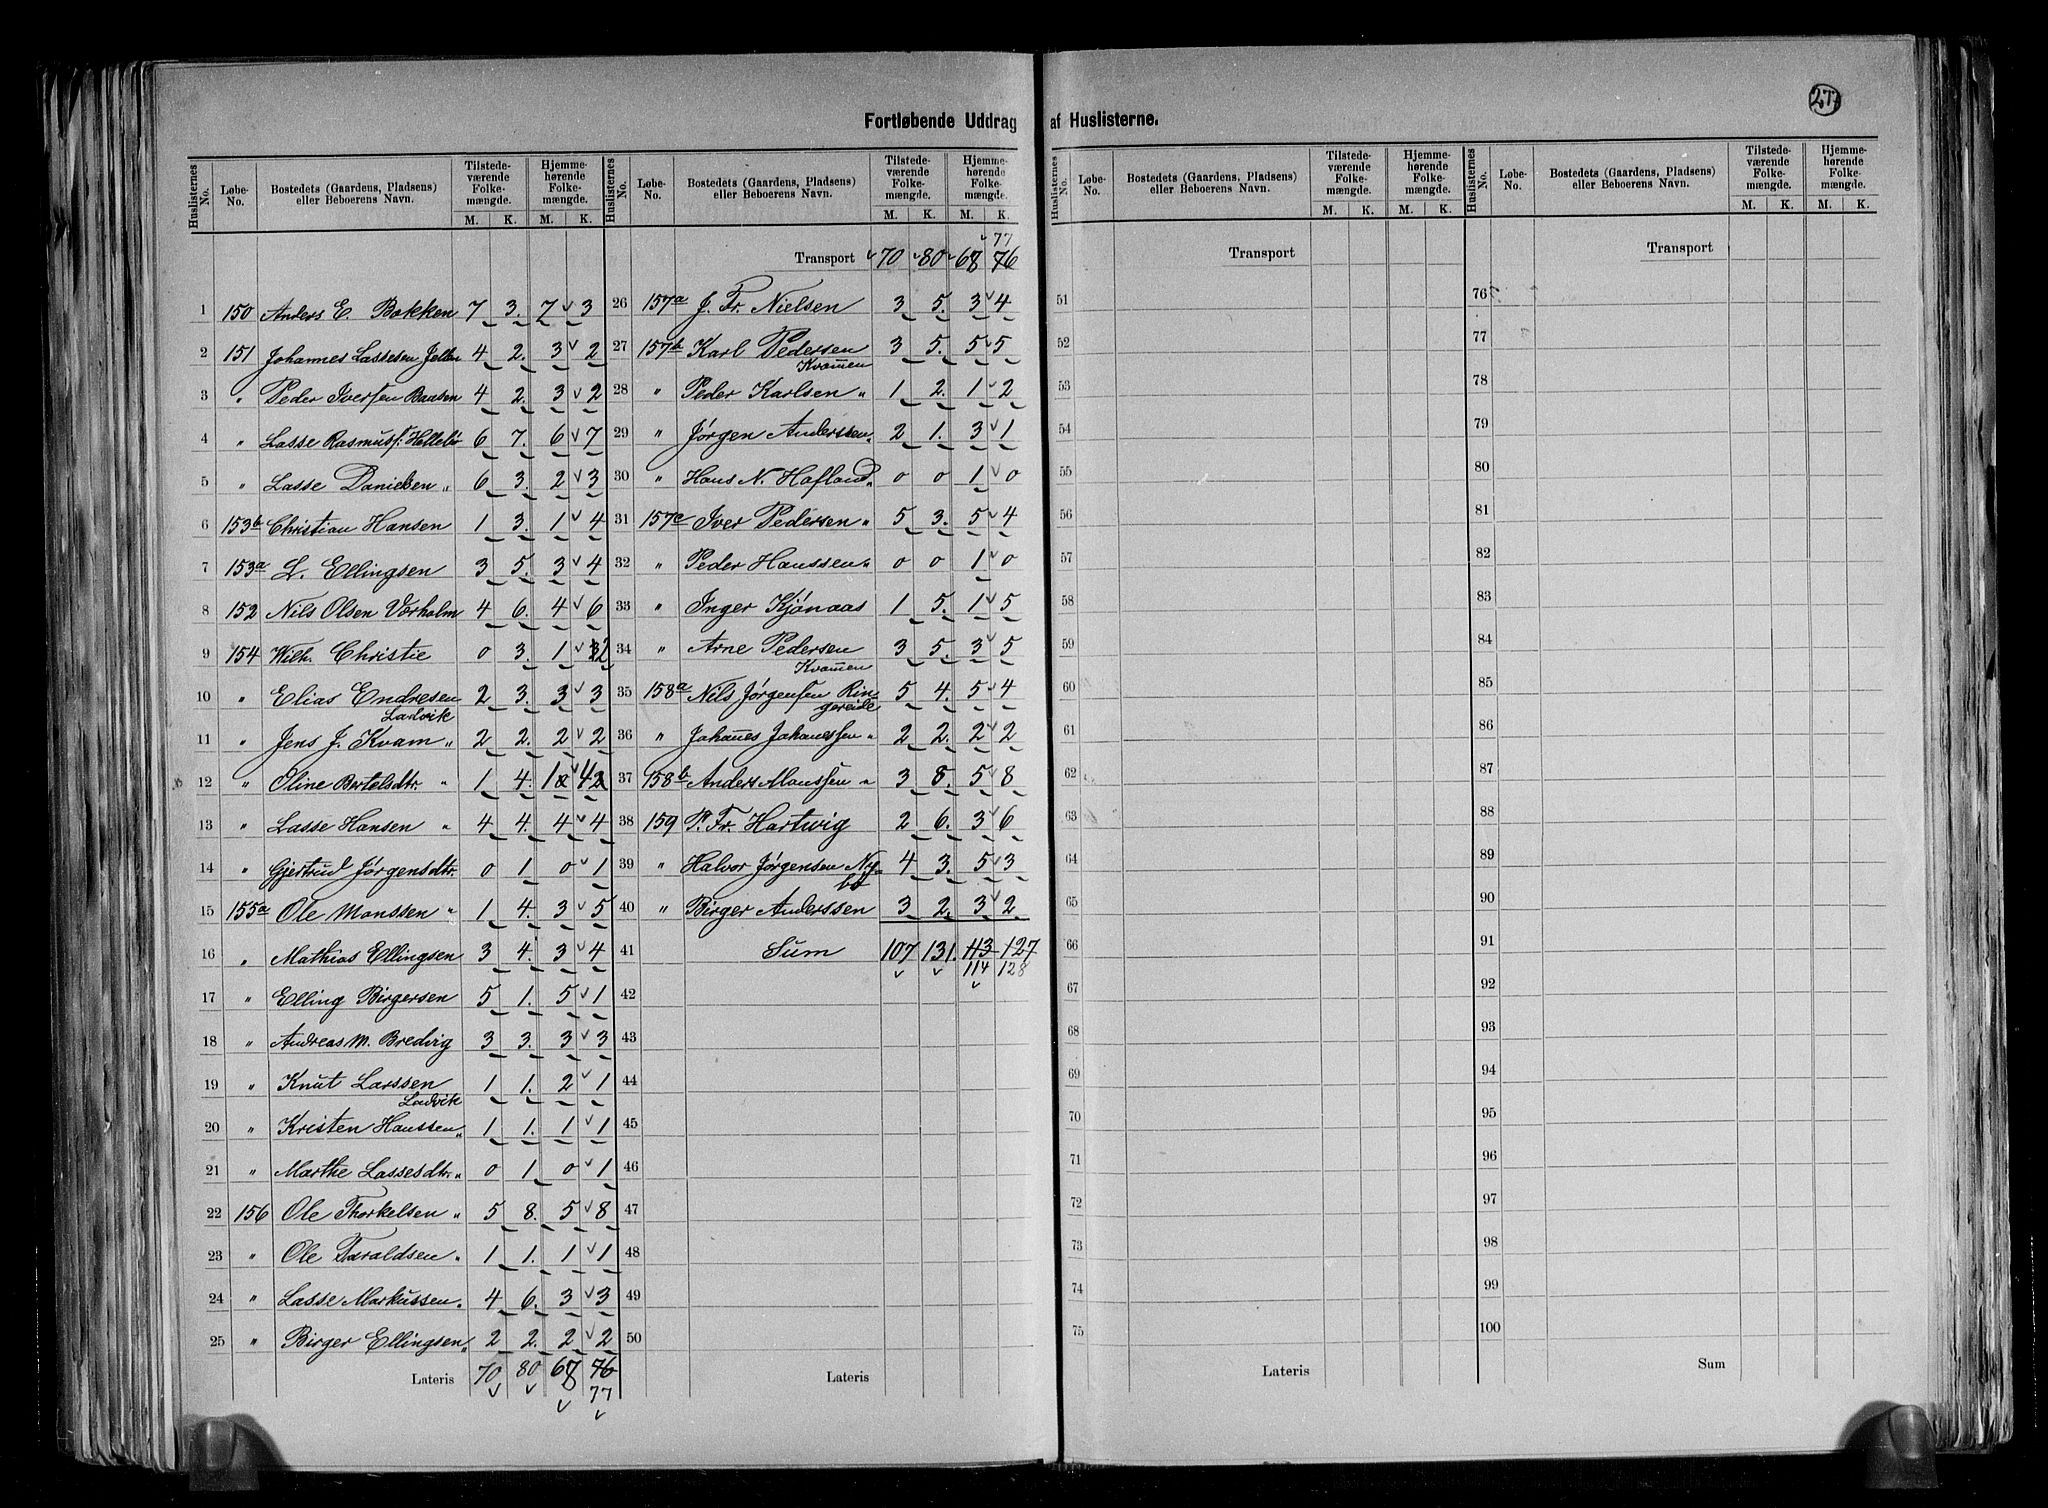 277
Fortløbende Uddrag af Huslisterne.
Huslisternes No. Løbe-No. Bostedets (Gaardens, Pladsens) eller Beboerens Navn. Tilstedeværende Folkemængde. M. K. Hjemmehørende Folkemængde. M. K.
1 150 Anders E. Bakken 7 3. 7 3
2 151 Johannes Lassesen 4 2. 3 2
3 " Peder Iversen 4 2. 3 2
4 " Lasse Rasmuss: 6 7. 6 7
5 " Lasse Danielsen " 6 3. 2 3
6 153b Christian Hansen 1 3. 1 4
7 153a L. Ellingsen 3 5. 3 4
8 152 Nils Olsen Værholm 4 6. 4 6
9 154 Wilh. Christie 0 3. 1 2
10 " Elias Endresen Ladvik 2 3. 3 3
11 " Jens J. Kvam " 2 2. 2 2
12 " Oline Bertelsdtr. " 1 4. 1 4
13 " Lasse Hansen " 4 4. 4 4
14 " Gjertrud Jørgensdtr. 0 1 0 1
15 155a Ole Monssen " 1 4. 3 5
16 " Mathias Ellingsen 3 4. 3 4
17 " Elling Birgersen 5 1. 5 1
18 " Andreas M. Bredvig 3 3. 3 3
19 " Knut Larssen Ladvik 1 1. 2 1
20 " Kristen Hanssen " 1 1. 1 1
21 " Marthe Lassesdtr. " 0 1 0 1
22 156 Ole Thorkelsen " 5 8. 5 8
23 " Ole Taraldsen " 1 1. 1 1
24 " Lasse Markussen " 4 6. 3 3
25 " Birger Ellingsen " 2 2. 2 2
Lateris 70 80 68 76
77
Huslisternes No. Løbe-No. Bostedets (Gaardens, Pladsens) eller Beboerens Navn. Tilstedeværende Folkemængde. M. K. Hjemmehørende Folkemængde. M. K.
77
Transport 70 80 68 76
26 157a J. Fr. Nielsen 3 5. 3 4
27 157b Karl Pedersen Kvamen 3 5. 5 5
28 " Peder Karlsen " 1 2. 1 2
29 " Jørgen Anderssen " 2 1. 3 1
30 " Hans N. Hafland " 0 0 1 0
31 157c Iver Pedersen " 5 3. 5 4
32 " Peder Hanssen " 0 0 1 0
33 " Inger Kjønaas 1 5. 1 5
34 " Arne Pedersen Kvamen 3 5. 3 5
35 158a Nils Jørgensen Ringereide 5 4. 5 4
36 " Johanes Johanessen " 2 2. 2 2
37 158b Anders Monssen " 3 8. 5 8
38 159 P. Fr. Hartwig 2 6. 3 6
39 " Halvor Jørgensen Nybø 4 3. 5 3
40 " Birger Anderssen 3 2. 3 2
41 Sum 107 131. 113 127
114 128
42
43
44
45
46
47
48
49
50
Lateris
Huslisternes No. Løbe-No. Bostedets (Gaardens, Pladsens) eller Beboerens Navn. Tilstedeværende Folkemængde. M. K. Hjemmehørende Folkemængde. M. K.
Transport
51
52
53
54
55
56
57
58
59
60
61
62
63
64
65
66
67
68
69
70
71
72
73
74
75
Lateris
Huslisternes No. Løbe-No. Bostedets (Gaardens, Pladsens) eller Beboerens Navn. Tilstedeværende Folkemængde. M. K. Hjemmehørende Folkemængde. M. K.
Transport
76
77
78
79
80
81
82
83
84
85
86
87
88
89
90
91
92
93
94
95
96
97
98
99
100
Sum